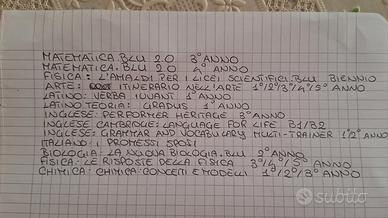 MATEMATICA.BLU 2.0 3° ANNO
MATEMATICA.BLU 2.0 4° ANNO
FISICA: L'AMALDI PER I LICEI SCIENTIFICI.BLU BIENNIO
ARTE: ITINERARIO NELL'ARTE 1°/2°/3°/4°/5° ANNO
LATINO: VERBA IUVANT 1° ANNO
LATINO TEORIA: GRADUS 1° ANNO
INGLESE: PERFORMER HERITAGE 3° ANNO
INGLESE CAMBRIDGE: LANGUAGE FOR LIFE B1/B2
INGLESE: GRAMMAR AND VOCABULARY MULTI-TRAINER 1°/2° ANNO
ITALIANO: I PROMESSI SPOSI
BIOLOGIA: LA NUOVA BIOLOGIA.BLU 2° ANNO
FISICA: LE RISPOSTE DELLA FISICA 3°/4°/5° ANNO
CHIMICA: CHIMICA: CONCETTI E MODELLI 1°/2°/3° ANNO
subito